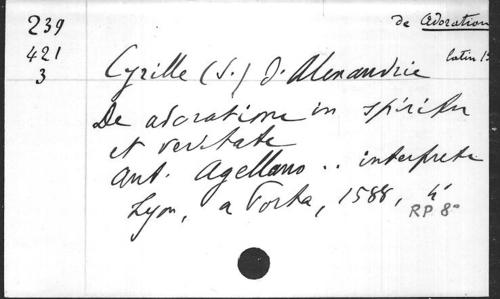 239
421
3
de Adoration
latin 15
Cyrille (S.) d'Alexandrie
De adoratione in spiritu
et veritate
Ant. Agellano .. interprete
Lyon, a Porta, 1588, 4°
RP 8°